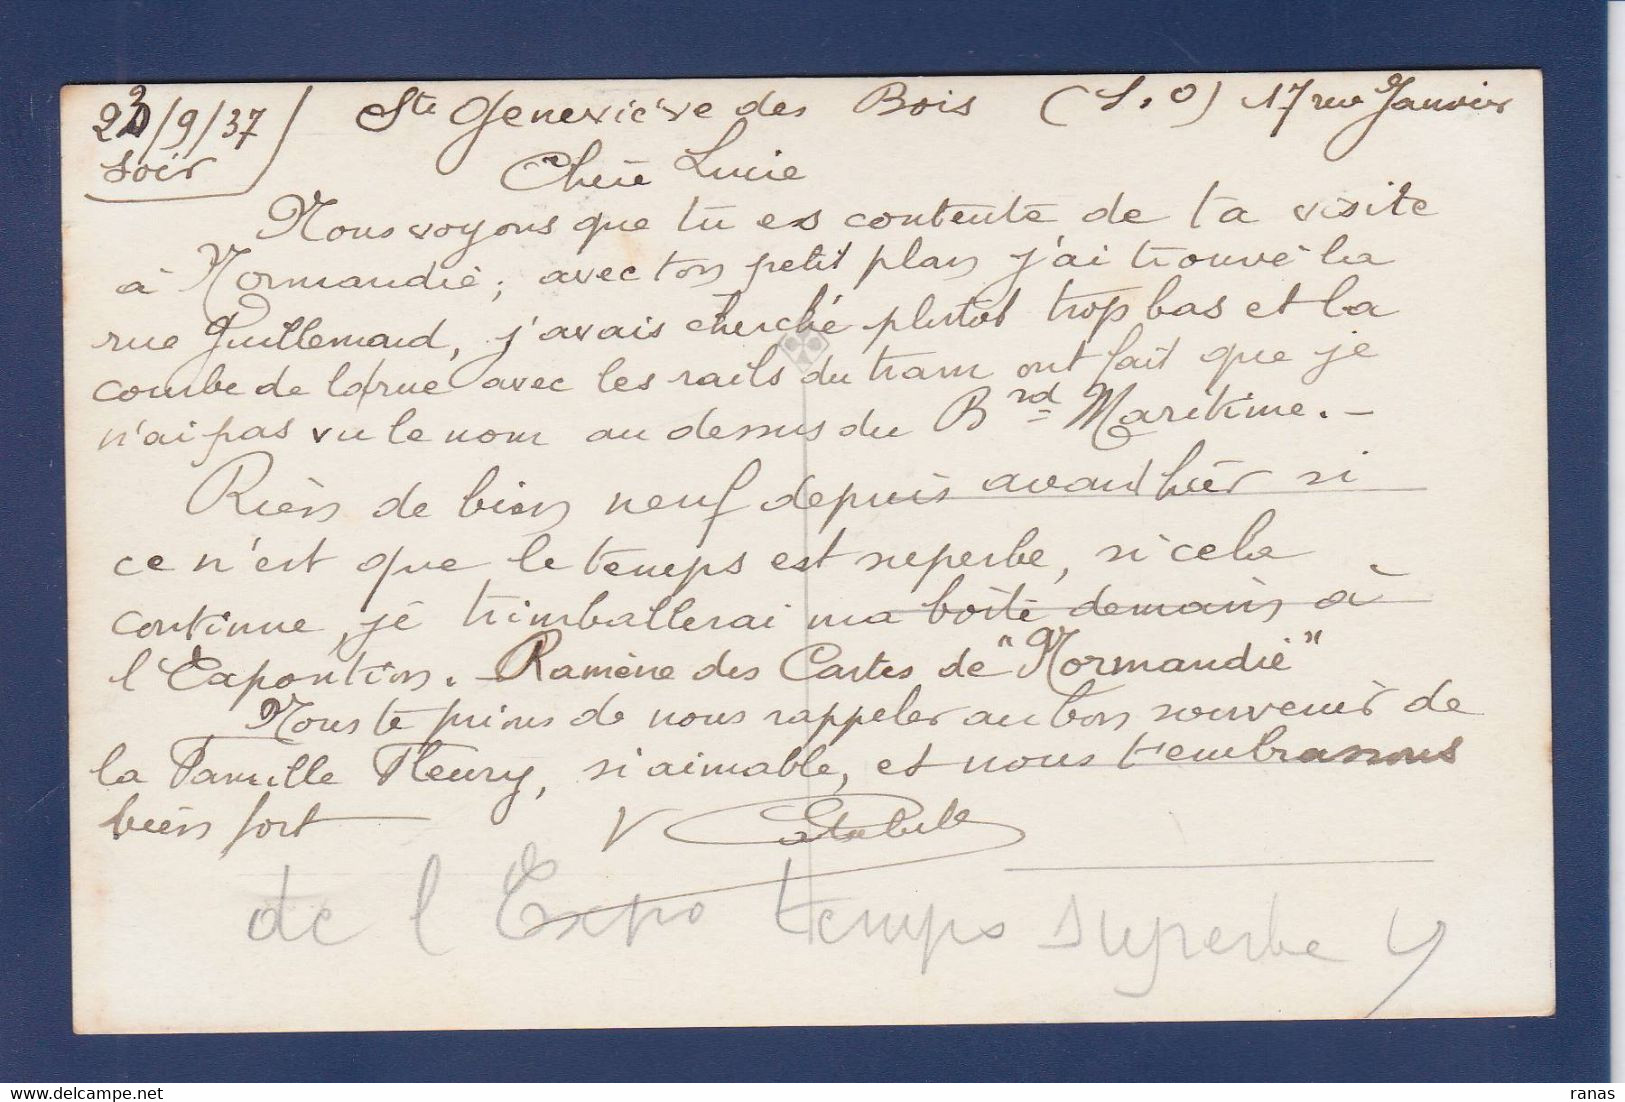 23/9/37 Ste Geneviève des Bois (S.O) 17 rue Janvier
soir
Chère Lucie
Nous voyons que tu es contente de ta visite
à Normandie; avec ton petit plan j'ai trouvé la
rue Guillemard, j'avais cherché plutôt trop bas et la
courbe de la rue avec les rails du tram ont fait que je
n'ai pas vu le nom au dessus du Brd Maritime. —
Rien de bien neuf depuis avant hier si
ce n'est que le temps est superbe, si cela
continue, je trimballerai ma boîte demain à
l'Exposition. — Ramène des Cartes de "Normandie"
Nous te prions de nous rappeler au bon souvenir de
la Famille Fleury, si aimable, et nous t'embrassons
bien fort
de l'Expo temps superbe
ranas